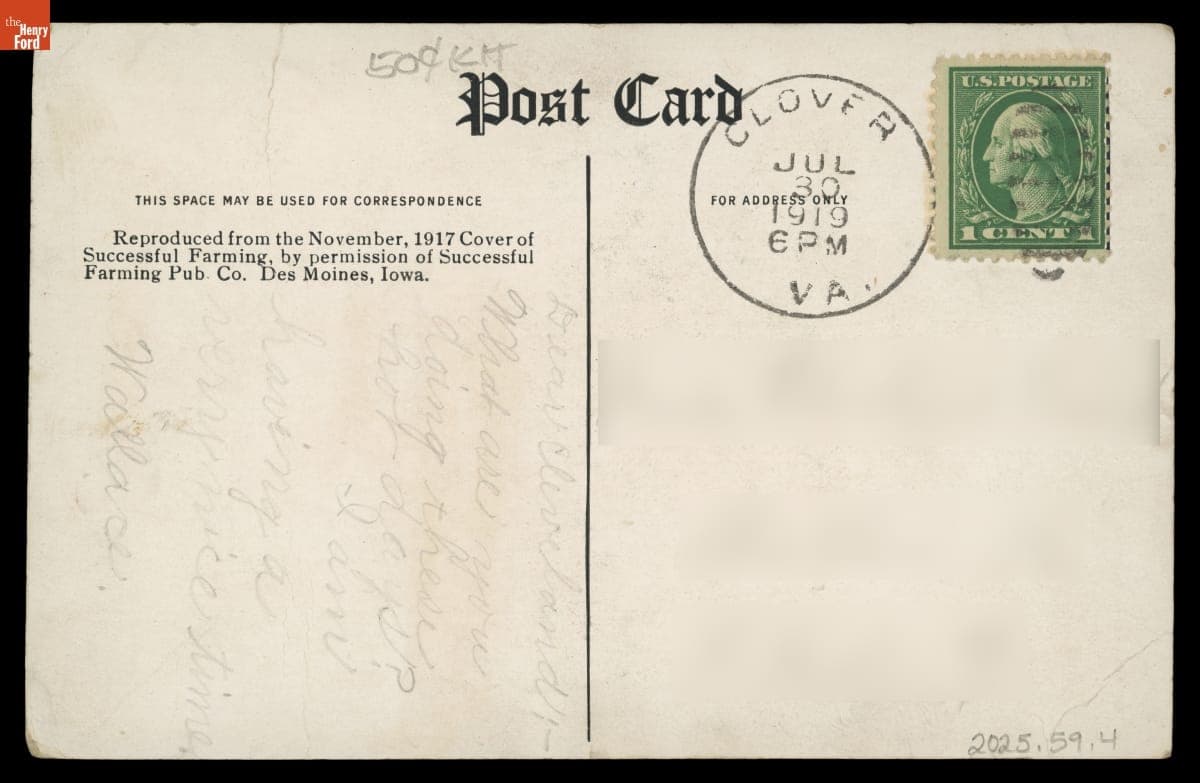 the
Henry
Ford
50¢ KH
Post Card
THIS SPACE MAY BE USED FOR CORRESPONDENCE
Reproduced from the November, 1917 Cover of
Successful Farming, by permission of Successful
Farming Pub. Co. Des Moines, Iowa.
Dear Cleveland:-
What are you
doing these
hot days?
I am
having a
very nice time.
Wallace.
FOR ADDRESS ONLY
CLOVER
JUL
30
1919
6PM
VA.
U.S. POSTAGE
1 CENT 1
2025.59.4